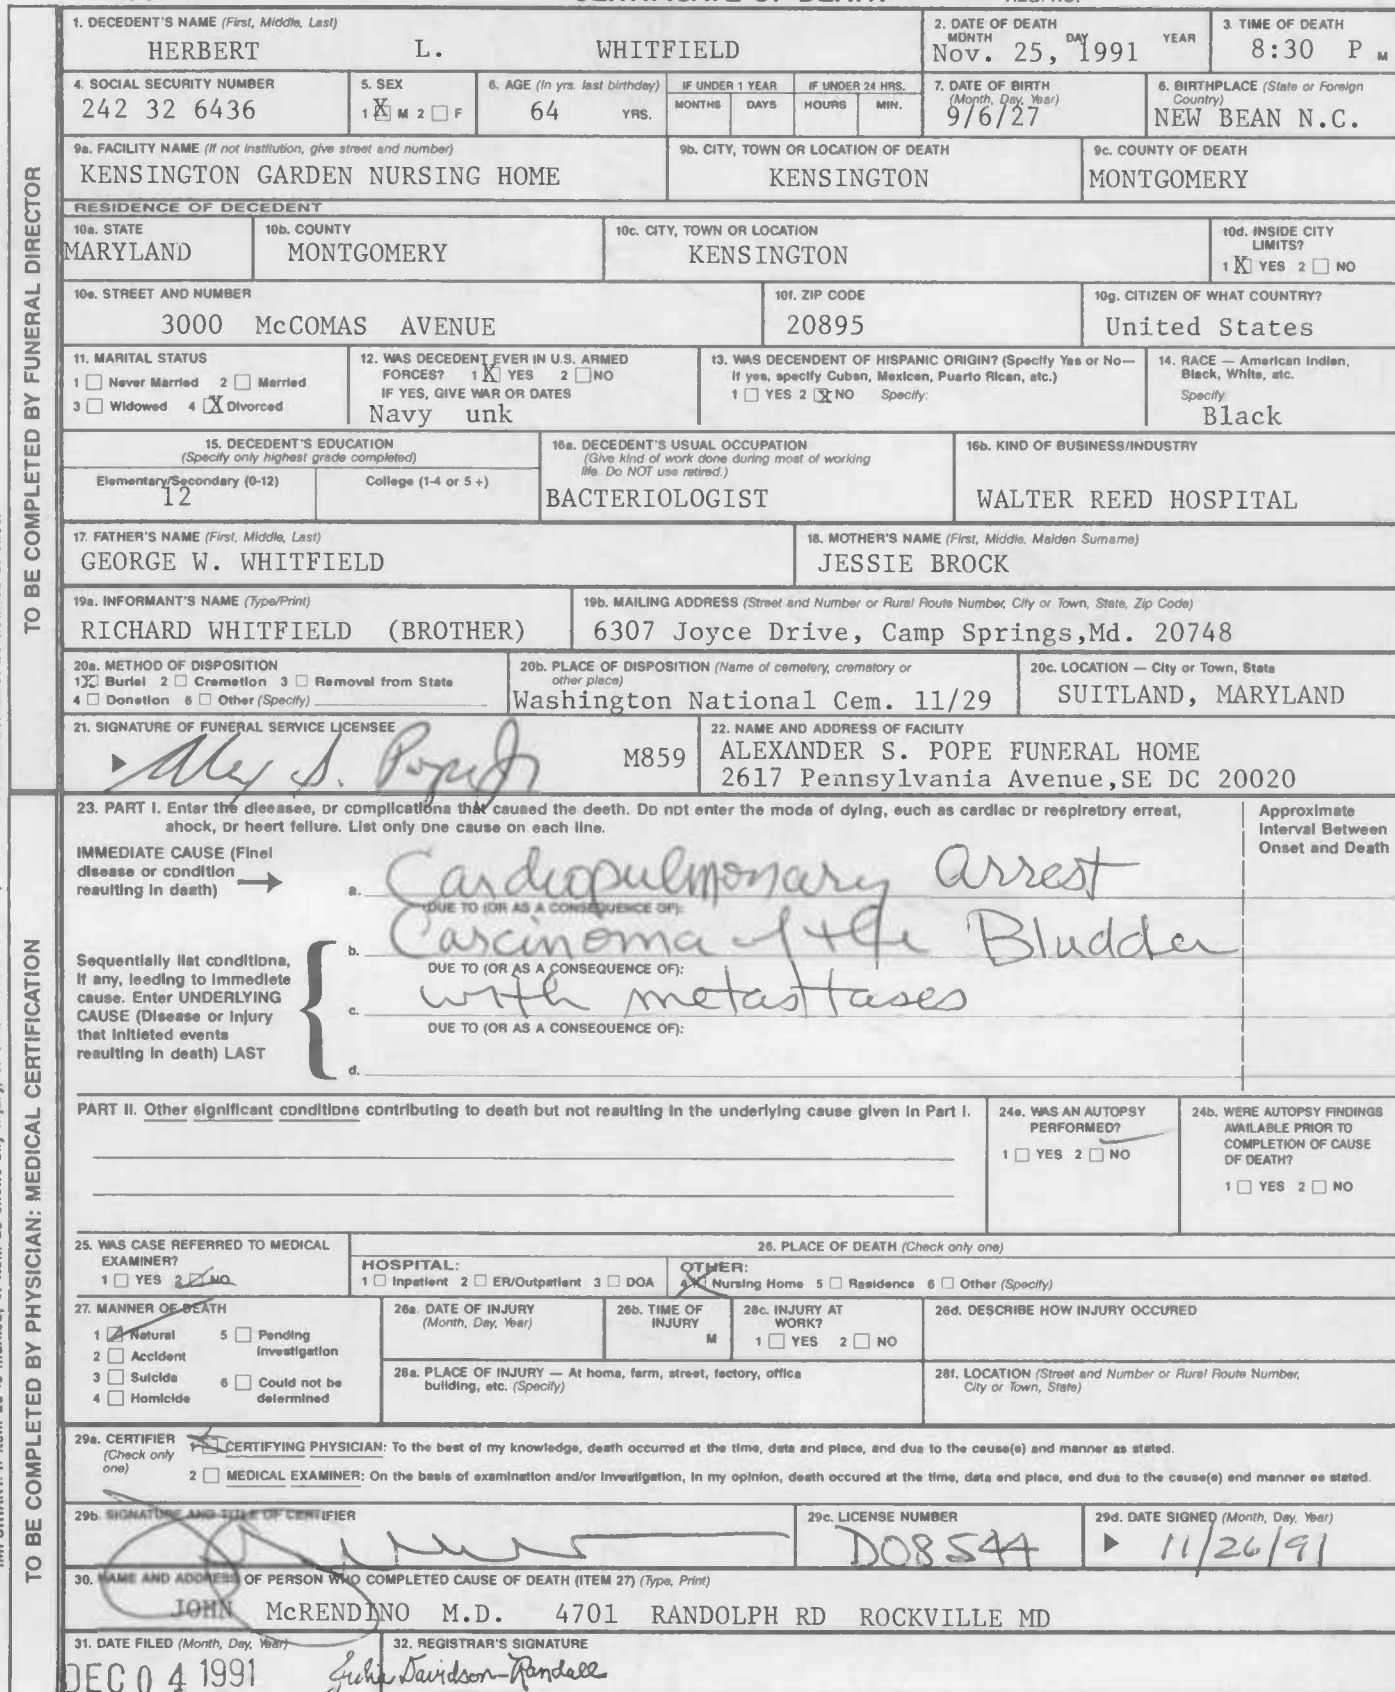 CERTIFICATE OF DEATH
1. DECEDENT'S NAME (First, Middle, Last)
HERBERT L. WHITFIELD
2. DATE OF DEATH
MONTH DAY YEAR
Nov. 25, 1991
3. TIME OF DEATH
8:30 P M
4. SOCIAL SECURITY NUMBER
242 32 6436
5. SEX
1 X M 2 F
6. AGE (In yrs. last birthday)
64 YRS.
IF UNDER 1 YEAR
MONTHS DAYS
IF UNDER 24 HRS.
HOURS MIN.
7. DATE OF BIRTH
(Month, Day, Year)
9/6/27
6. BIRTHPLACE (State or Foreign
Country)
NEW BEAN N.C.
9a. FACILITY NAME (If not institution, give street and number)
KENSINGTON GARDEN NURSING HOME
9b. CITY, TOWN OR LOCATION OF DEATH
KENSINGTON
9c. COUNTY OF DEATH
MONTGOMERY
RESIDENCE OF DECEDENT
10a. STATE
MARYLAND
10b. COUNTY
MONTGOMERY
10c. CITY, TOWN OR LOCATION
KENSINGTON
10d. INSIDE CITY
LIMITS?
1 X YES 2 NO
10e. STREET AND NUMBER
3000 McCOMAS AVENUE
10f. ZIP CODE
20895
10g. CITIZEN OF WHAT COUNTRY?
United States
11. MARITAL STATUS
1 Never Married 2 Married
3 Widowed 4 X Divorced
12. WAS DECEDENT EVER IN U.S. ARMED
FORCES? 1 X YES 2 NO
IF YES, GIVE WAR OR DATES
Navy unk
13. WAS DECENDENT OF HISPANIC ORIGIN? (Specify Yes or No—
If yes, specify Cuban, Mexican, Puerto Rican, etc.)
1 YES 2 X NO Specify:
14. RACE — American Indien,
Bleck, White, etc.
Specify
Black
15. DECEDENT'S EDUCATION
(Specify only highest grade completed)
Elementary/Secondary (0-12)
12
College (1-4 or 5 +)
16a. DECEDENT'S USUAL OCCUPATION
(Give kind of work done during most of working
life. Do NOT use retired.)
BACTERIOLOGIST
16b. KIND OF BUSINESS/INDUSTRY
WALTER REED HOSPITAL
17. FATHER'S NAME (First, Middle, Last)
GEORGE W. WHITFIELD
18. MOTHER'S NAME (First, Middle, Maiden Surname)
JESSIE BROCK
19a. INFORMANT'S NAME (Type/Print)
RICHARD WHITFIELD (BROTHER)
19b. MAILING ADDRESS (Street and Number or Rural Route Number, City or Town, State, Zip Code)
6307 Joyce Drive, Camp Springs,Md. 20748
20a. METHOD OF DISPOSITION
1 X Buriel 2 Cremetlon 3 Removal from State
4 Donetlon 6 Other (Specify)
20b. PLACE OF DISPOSITION (Name of cemetery, crematory or
other place)
Washington National Cem. 11/29
20c. LOCATION — City or Town, State
SUITLAND, MARYLAND
21. SIGNATURE OF FUNERAL SERVICE LICENSEE
Alex S. Pope Jr M859
22. NAME AND ADDRESS OF FACILITY
ALEXANDER S. POPE FUNERAL HOME
2617 Pennsylvania Avenue,SE DC 20020
TO BE COMPLETED BY FUNERAL DIRECTOR
23. PART I. Enter the dieeasee, or complicatlona that caused the deeth. Do not enter the moda of dying, euch as cardlac or reepiretory erreat,
ahock, or heert fellure. List only one cause on each line.
Approximate
Interval Between
Onset and Death
IMMEDIATE CAUSE (Finel
disease or condition
resulting in death)
a. Cardiopulmonary Arrest
DUE TO (OR AS A CONSEQUENCE OF):
Sequentially liat conditlona,
If any, leeding to Immedlete
cause. Enter UNDERLYING
CAUSE (Disease or Injury
that Initieted events
reaulting In death) LAST
b. Carcinoma of the Bludder
DUE TO (OR AS A CONSEQUENCE OF):
c. with metasttases
DUE TO (OR AS A CONSEQUENCE OF):
d.
PART II. Other elgnificant conditione contributing to death but not reaulting In the underlying cause given In Part I.
24a. WAS AN AUTOPSY
PERFORMED?
1 YES 2 NO
24b. WERE AUTOPSY FINDINGS
AVAILABLE PRIOR TO
COMPLETION OF CAUSE
OF DEATH?
1 YES 2 NO
25. WAS CASE REFERRED TO MEDICAL
EXAMINER?
1 YES 2 NO
26. PLACE OF DEATH (Check only one)
HOSPITAL:
1 Inpatient 2 ER/Outpatient 3 DOA
OTHER:
4 X Nursing Home 5 Raeldence 6 Other (Specify)
27. MANNER OF DEATH
1 Natural 5 Pending
Investigation
2 Accident
3 Sulcida 6 Could not be
determined
4 Homlclde
26a. DATE OF INJURY
(Month, Day, Year)
26b. TIME OF
INJURY
M
28c. INJURY AT
WORK?
1 YES 2 NO
26d. DESCRIBE HOW INJURY OCCURED
28a. PLACE OF INJURY — At homa, farm, street, fectory, offica
building, etc. (Specify)
28f. LOCATION (Street and Number or Rural Route Number,
City or Town, State)
29a. CERTIFIER
(Check only
one)
CERTIFYING PHYSICIAN: To the best of my knowledge, death occurred at the time, data and place, and due to the ceuse(e) and manner as stated.
2 MEDICAL EXAMINER: On the basis of examination and/or Investigation, In my oplnlon, death occured at the time, data end place, end dua to the cause(e) end manner ee stated.
29b. SIGNATURE AND TITLE OF CERTIFIER
29c. LICENSE NUMBER
D08544
29d. DATE SIGNED (Month, Day, Year)
11/26/91
30. NAME AND ADDRESS OF PERSON WHO COMPLETED CAUSE OF DEATH (ITEM 27) (Type, Print)
JOHN McRENDINO M.D. 4701 RANDOLPH RD ROCKVILLE MD
31. DATE FILED (Month, Day, Year)
DEC 04 1991
32. REGISTRAR'S SIGNATURE
Julia Davidson-Randall
TO BE COMPLETED BY PHYSICIAN: MEDICAL CERTIFICATION